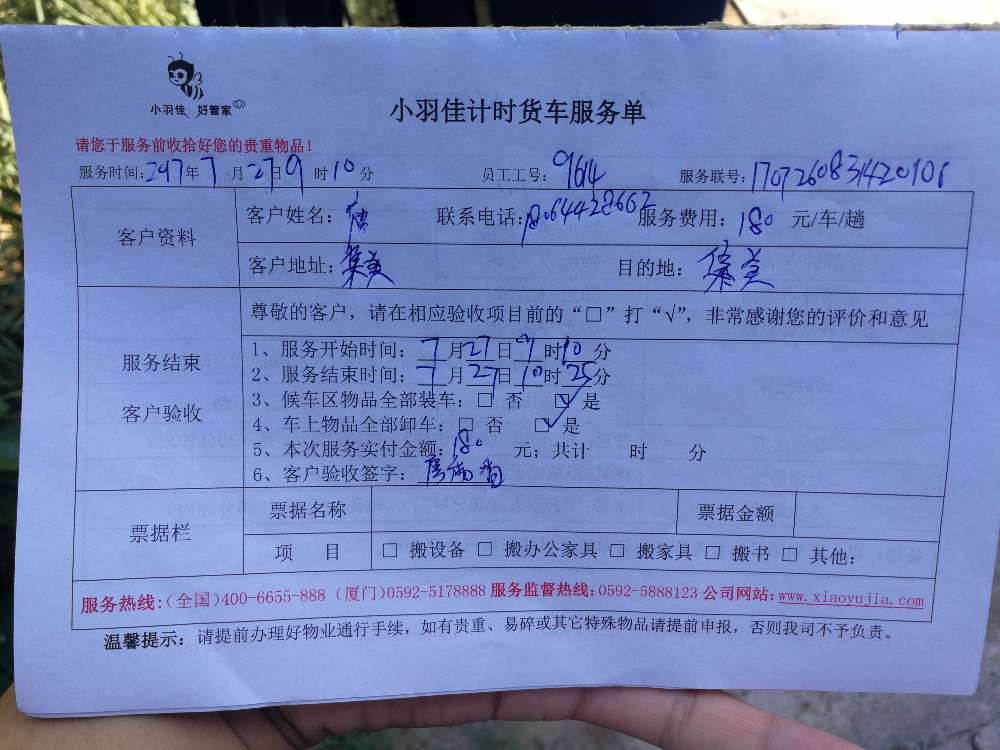 小羽佳 好管家
小羽佳计时货车服务单
请您于服务前收拾好您的贵重物品！
服务时间：2017年7月27日9时10分 员工工号：9614 服务联号：170726083142010
客户资料 客户姓名： 联系电话：18064428662 服务费用：180 元/车/趟
客户地址：集美 目的地：集美
服务结束 客户验收
尊敬的客户，请在相应验收项目前的“□”打“√”，非常感谢您的评价和意见
1、服务开始时间：7月27日9时10分
2、服务结束时间：7月27日10时25分
3、候车区物品全部装车：□ 否 ☑ 是
4、车上物品全部卸车：□ 否 ☑ 是
5、本次服务实付金额：180 元；共计 时 分
6、客户验收签字：
票据栏 票据名称 票据金额
项 目 □ 搬设备 □ 搬办公家具 □ 搬家具 □ 搬书 □ 其他：
服务热线：（全国）400-6655-888（厦门）0592-5178888 服务监督热线：0592-5888123 公司网站：www.xiaoyujia.com
温馨提示：请提前办理好物业通行手续，如有贵重、易碎或其它特殊物品请提前申报，否则我司不予负责。